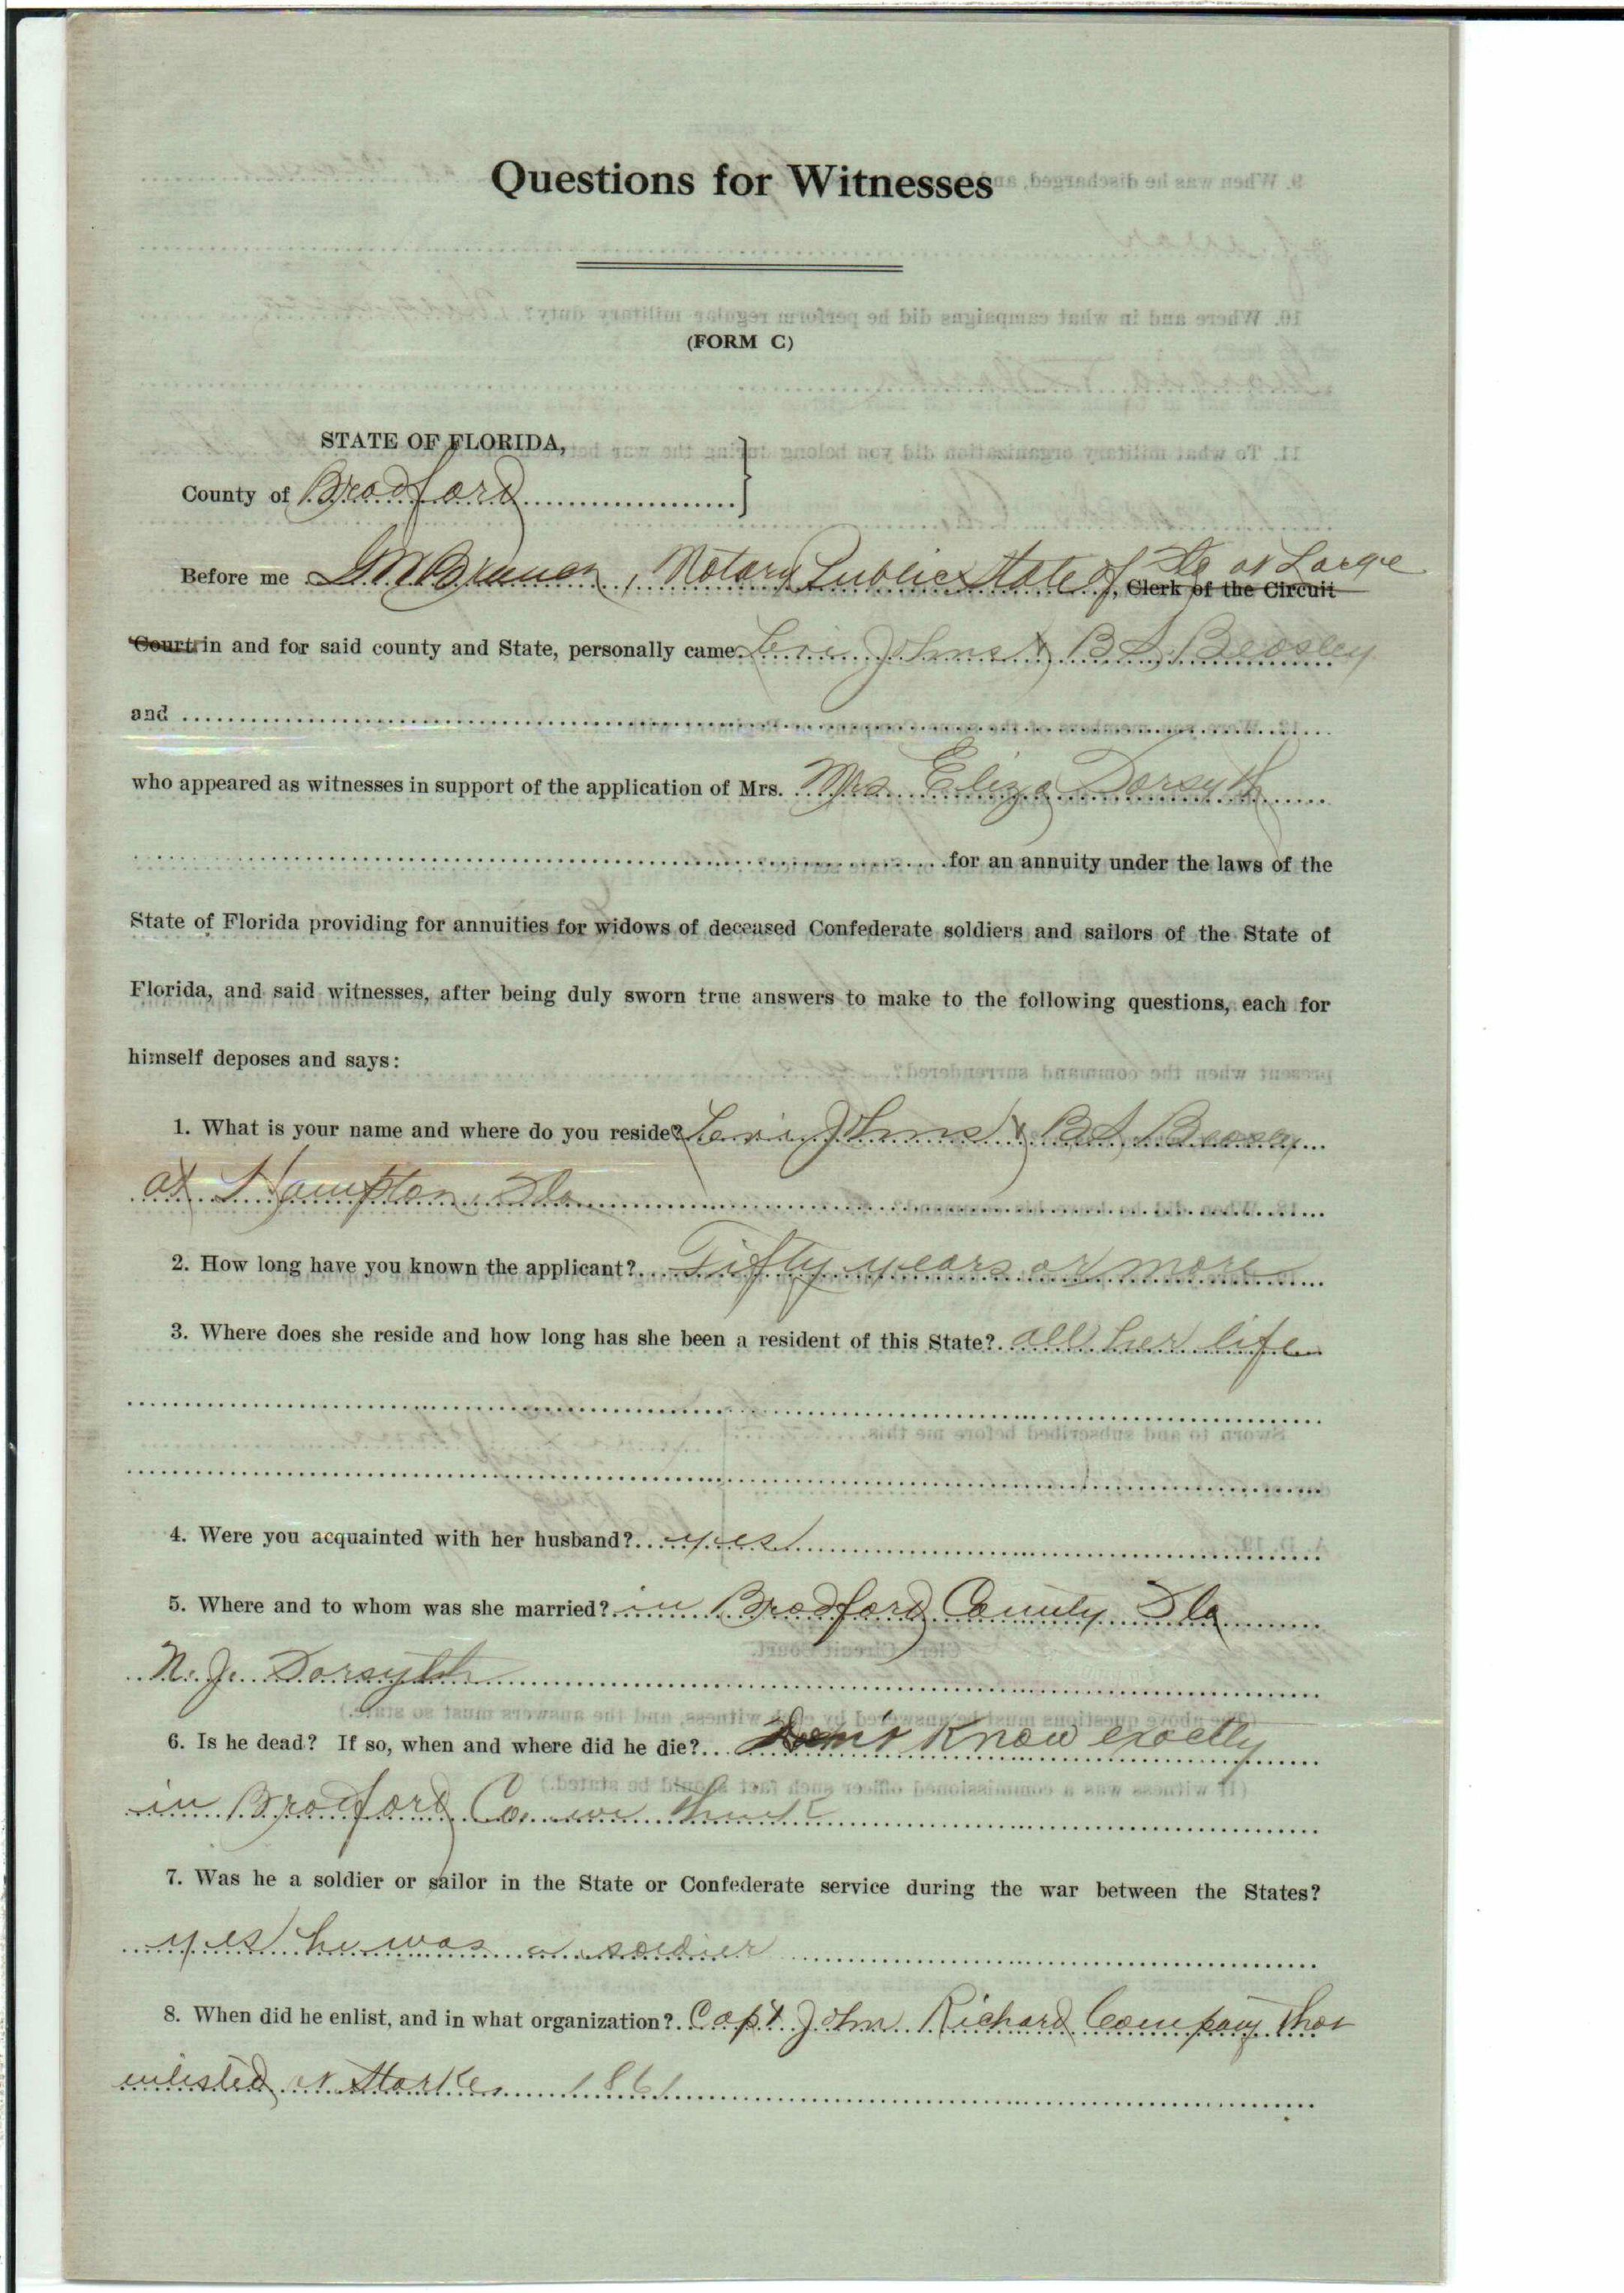 Questions for Witnesses
(FORM C)
STATE OF FLORIDA,
County of Bradford
Before me , Notary Public State of Fla at Large , Clerk of the Circuit
Court in and for said county and State, personally came Levi Johns & B S Beasley
and
who appeared as witnesses in support of the application of Mrs. Mrs Eliza Dorsyth
for an annuity under the laws of the
State of Florida providing for annuities for widows of deceased Confederate soldiers and sailors of the State of
Florida, and said witnesses, after being duly sworn true answers to make to the following questions, each for
himself deposes and says:
1. What is your name and where do you reside? Levi Johns & B S Beasley
at Hampton Fla
2. How long have you known the applicant? Fifty years or more
3. Where does she reside and how long has she been a resident of this State? all her life
4. Were you acquainted with her husband? yes
5. Where and to whom was she married? in Bradford County Fla
N. J. Dorsyth
6. Is he dead? If so, when and where did he die? Don't Know exactly
in Bradford Co we think
7. Was he a soldier or sailor in the State or Confederate service during the war between the States?
yes he was a soldier
8. When did he enlist, and in what organization? Capt John Richard Company
enlisted at Starke 1861